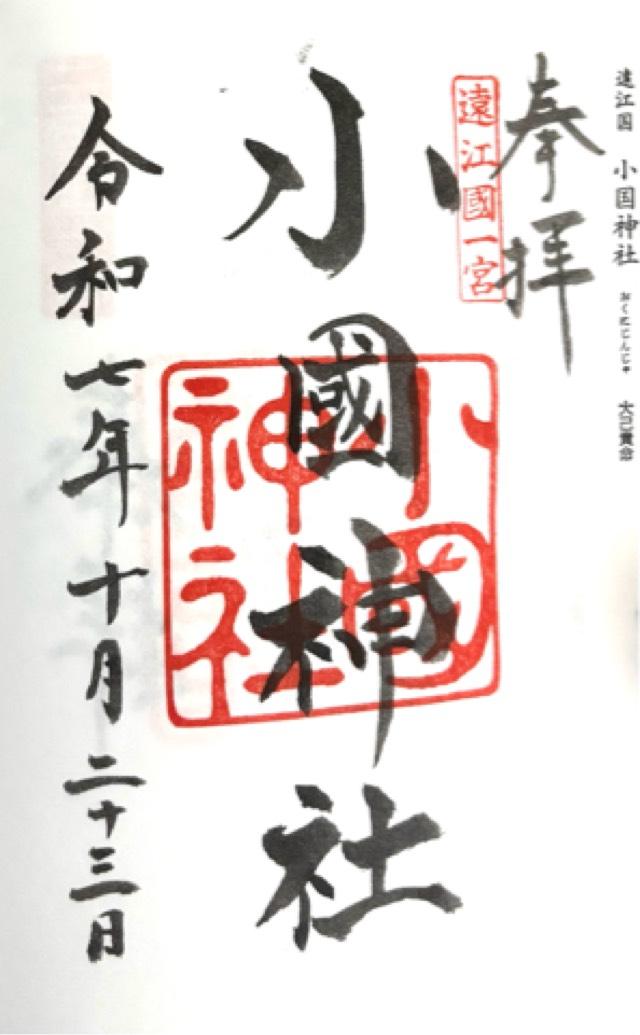 遠江国 小国神社 おくにじんじゃ 大己貴命
奉拝
遠江國一宮
小國神社
小國
神社
令和七年十月二十三日